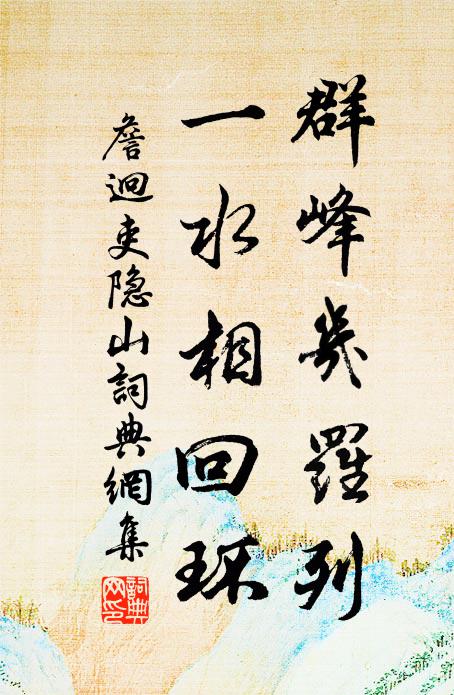 群峰幾羅列
一水相回環
詹迥吏隐山詞典網集
詞典